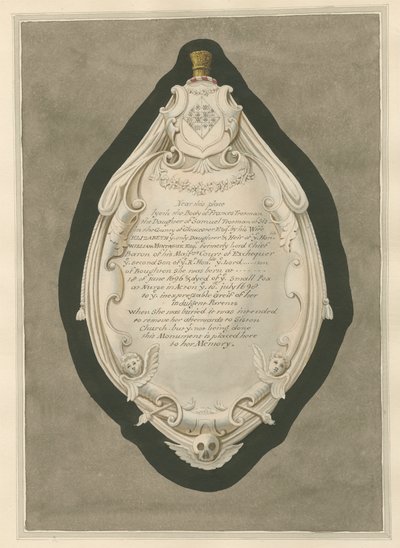 Near this place
lyeth the Body of Frances Trotman
the Daughter of Samuel Trotman of
in the County of Glocester Esqr. by his Wife
ELIZABETH ye. only Daughter & Heir of ye. Honble.
WILLIAM MONTAGUE Esqr. formerly Lord Chief
Baron of his Majties. Court of Exchequer
ye. second Son of ye. Rt. Honble. ye. Lord
of Boughton She was born at
18 of June 1696 & dyed of ye. Small Pox
at Nurse in Acton ye. 16. July 1698
to ye. inexpressable Greif of her
Indulgent Parents
When she was buried it was intended
to remove her afterwards to Siston
Church. but yt. not being done
this Monument is placed here
to her Memory.